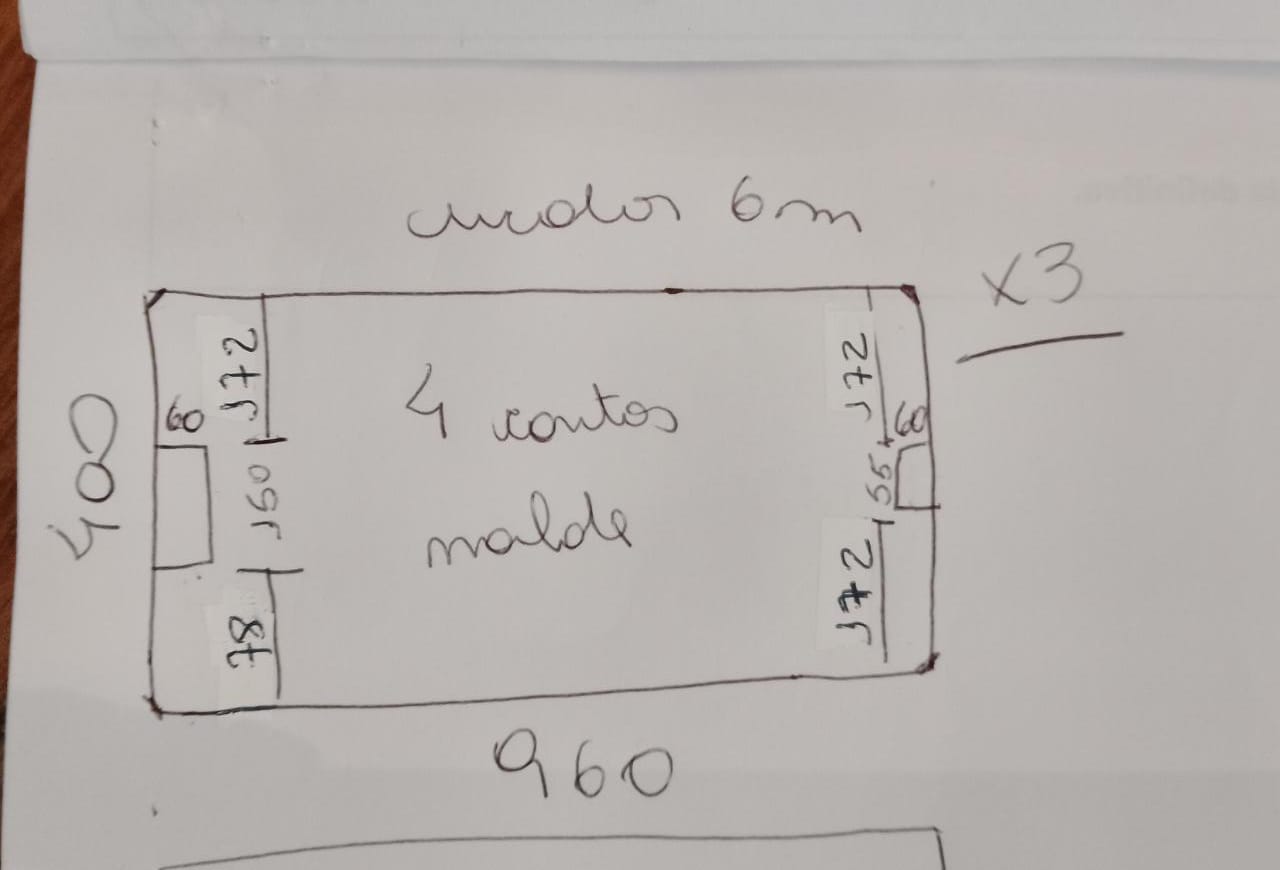 6m
X3
400
960
60
172
4 cantos
molde
150
78
172
60
55
172